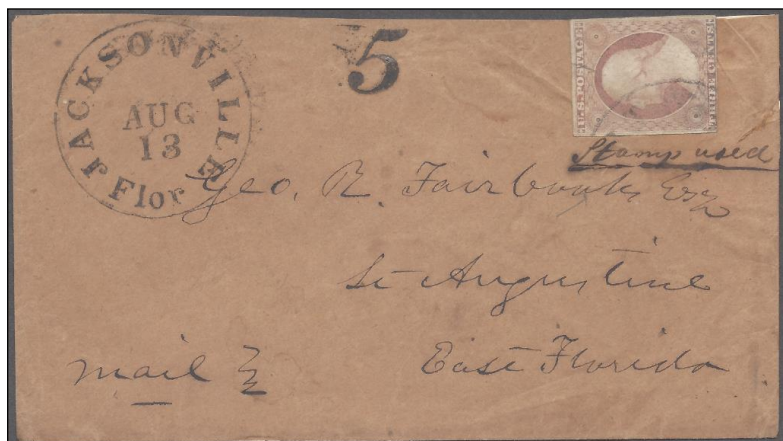 JACKSONVILLE Flor
AUG
13
5
U.S. POSTAGE
THREE CENTS
Stamp used
Geo. R. Fairbanks Esq
St Augustine
East Florida
mail